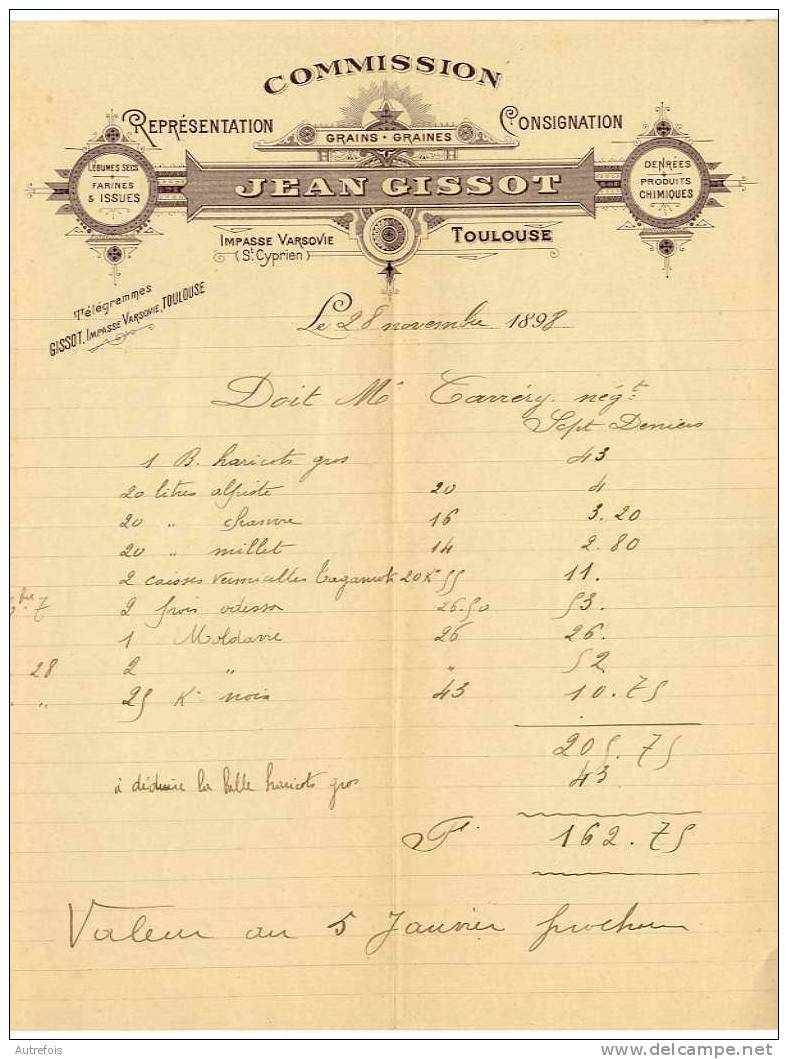 COMMISSION
REPRÉSENTATION
CONSIGNATION
GRAINS · GRAINES
LÉGUMES SECS
FARINES
& ISSUES
JEAN GISSOT
DENRÉES
PRODUITS
CHIMIQUES
IMPASSE VARSOVIE
(St. Cyprien)
TOULOUSE
Télégrammes
GISSOT, IMPASSE VARSOVIE, TOULOUSE
Le 28 novembre 1898
Doit Mr Carréry négt
Sept Deniers
1 B. haricots gros 43
20 litres alpiste 20 4
20 " chanvre 16 3.20
20 " millet 14 2.80
2 caisses vermicelles 20 K 55 11.
7 2 odessa 26.50 53.
1 Moldavie 26 26.
28 2 " " 52
" 25 K. noix 43 10.75
205.75
à déduire la balle haricots gros 43
F. 162.75
Valeur au 5 Janvier prochain
Autrefois
delcampe.net